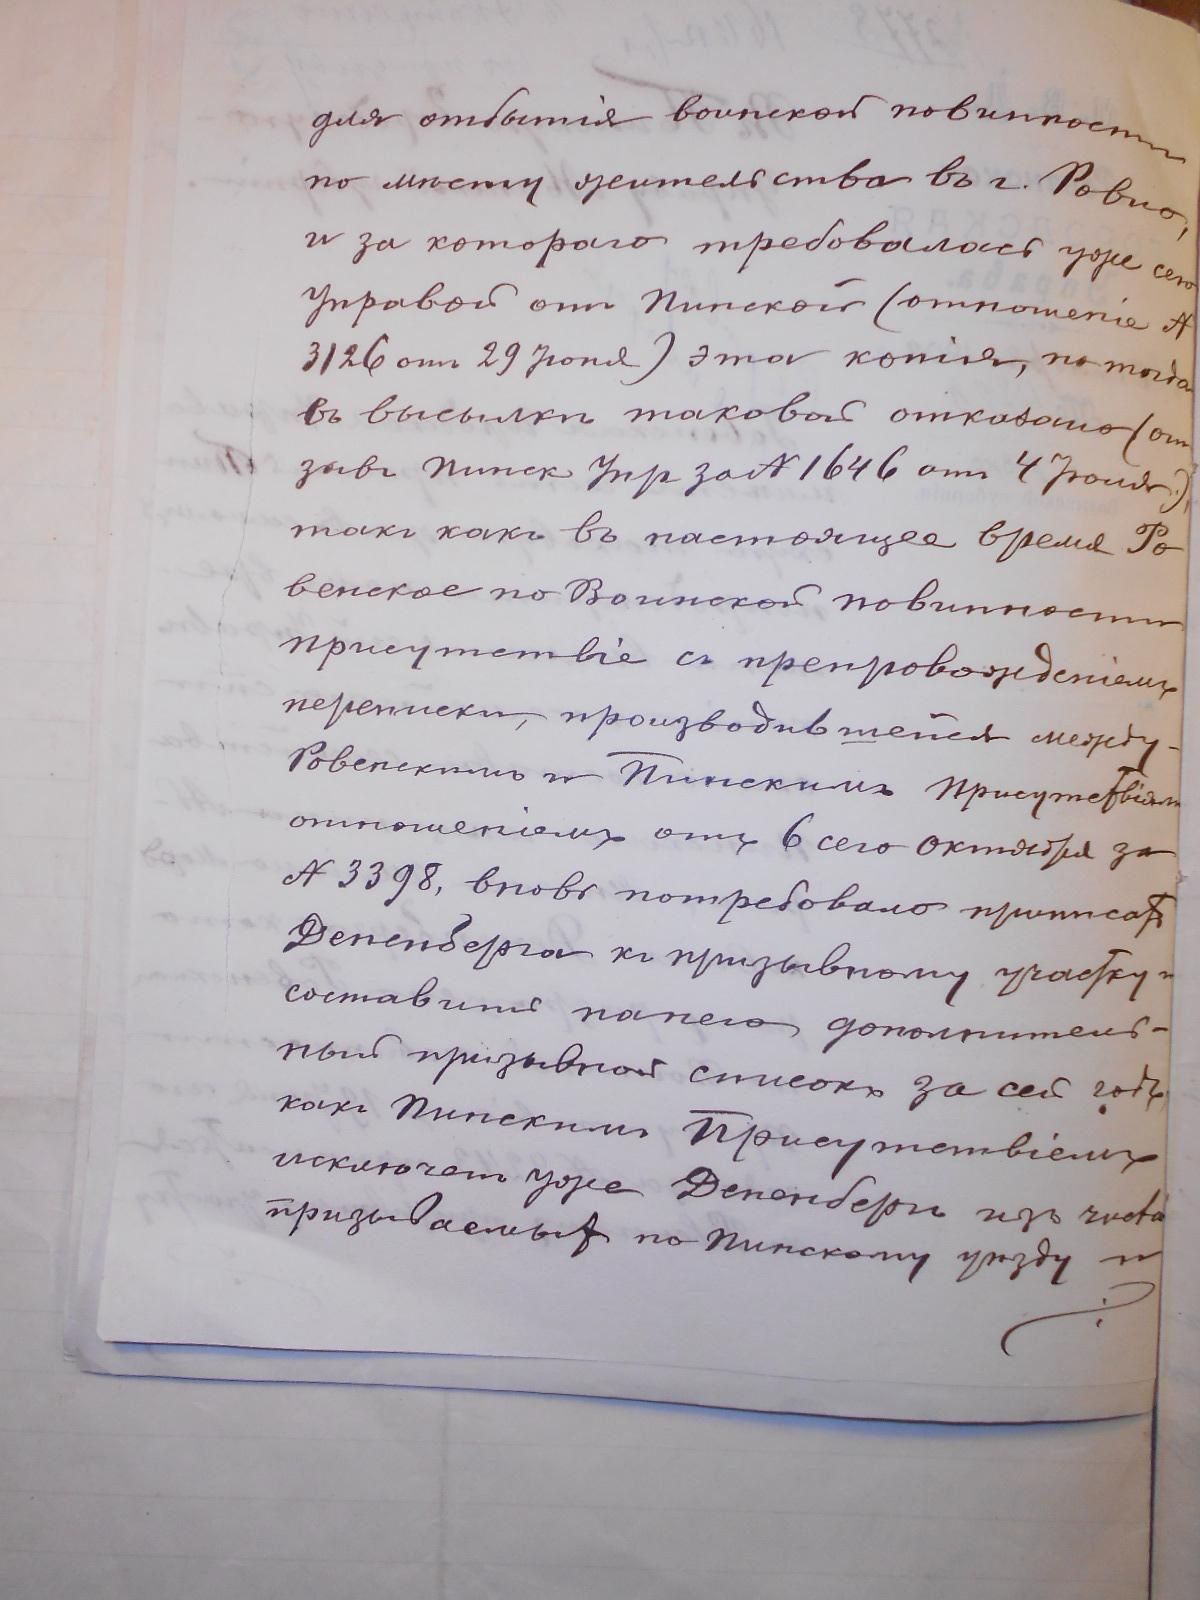 для отбытія воинской повинности
по мѣсту жительства въ г. Ровно,
и за котораго требовалась уже сею
Управой отъ Пинской (отношеніе №
3126 отъ 29 Іюня) эта копія, но тогда
въ высылкѣ таковой отказано (от
зывъ Пинск Упр за № 1646 отъ 4 Іюля),
такъ какъ въ настоящее время Ро
венское по Воинской повинности
Присутствіе съ препровожденіемъ
переписки, производившейся между
Ровенскимъ и Пинскимъ Присутствіями
отношеніемъ отъ 6 сего Октября за
№ 3398, вновь потребовало приписать
Депенберга къ призывному участку и
составить на него дополнитель-
ный призывной списокъ за сей годъ,
какъ Пинскимъ Присутствіемъ
исключенъ уже Депенбергъ изъ числа
призываемыхъ по Пинскому уѣзду и